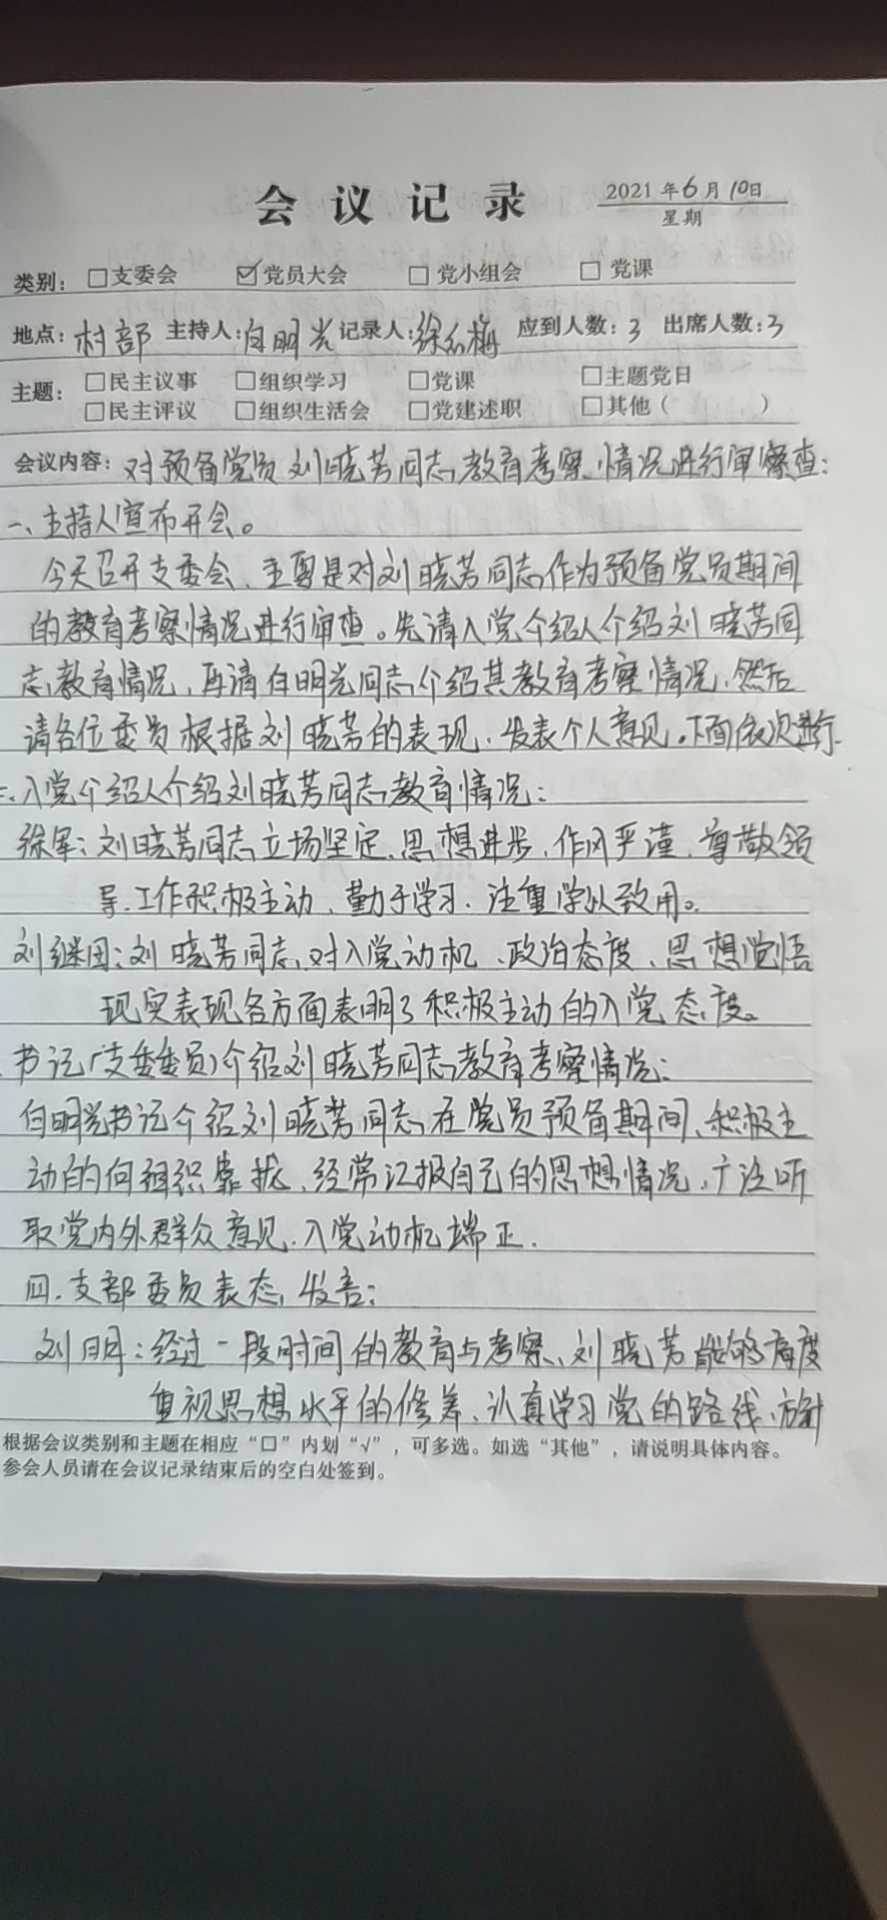 会议记录
2021年6月10日
星期
类别：□支委会 ☑党员大会 □党小组会 □党课
地点：村部 主持人：白明光 记录人：徐红梅 应到人数：3 出席人数：3
主题：□民主议事 □组织学习 □党课 □主题党日
□民主评议 □组织生活会 □党建述职 □其他（ ）
会议内容：对预备党员刘晓芳同志教育考察情况进行审察查：
一、主持人宣布开会。
今天召开支委会、主要是对刘晓芳同志作为预备党员期间
的教育考察情况进行审查。先请入党介绍人介绍刘晓芳同
志教育情况，再请白明光同志介绍其教育考察情况，然后
请各位委员根据刘晓芳的表现，发表个人意见。下面依次进行.
二、入党介绍人介绍刘晓芳同志教育情况：
徐军：刘晓芳同志立场坚定、思想进步，作风严谨，尊敬领
导.工作积极主动、勤于学习，注重学以致用。
刘继国：刘晓芳同志对入党动机、政治态度、思想觉悟
现实表现各方面表明了积极主动的入党态度。
书记（支委委员）介绍刘晓芳同志教育考察情况：
白明光书记介绍刘晓芳同志在党员预备期间、积极主
动的向组织靠拢、经常汇报自己的思想情况，广泛听
取党内外群众意见.入党动机端正.
四.支部委员表态发言：
刘明：经过一段时间的教育与考察、刘晓芳能够高度
重视思想水平的修养、认真学习党的路线、方针
根据会议类别和主题在相应“□”内划“√”，可多选。如选“其他”，请说明具体内容。
参会人员请在会议记录结束后的空白处签到。